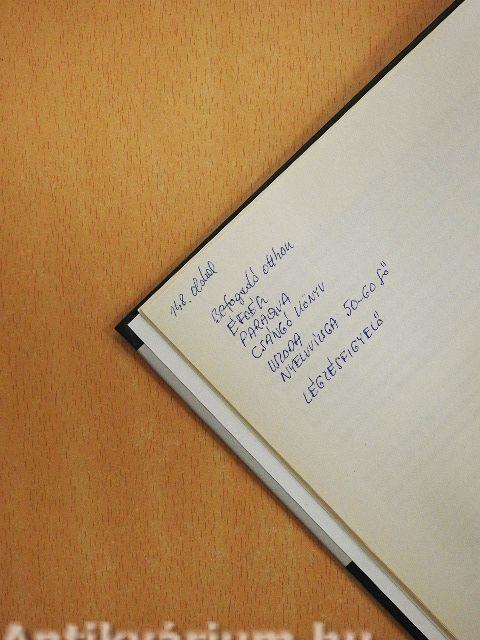 148. oldal
Befogadó otthon
ÉTEL
PARADNA
CSÁNGÓ KÖNYV
USZODA
NYELVVIZSGA 50-60 fő"
LÉGZÉSFIGYELŐ
Antikvárium.hu